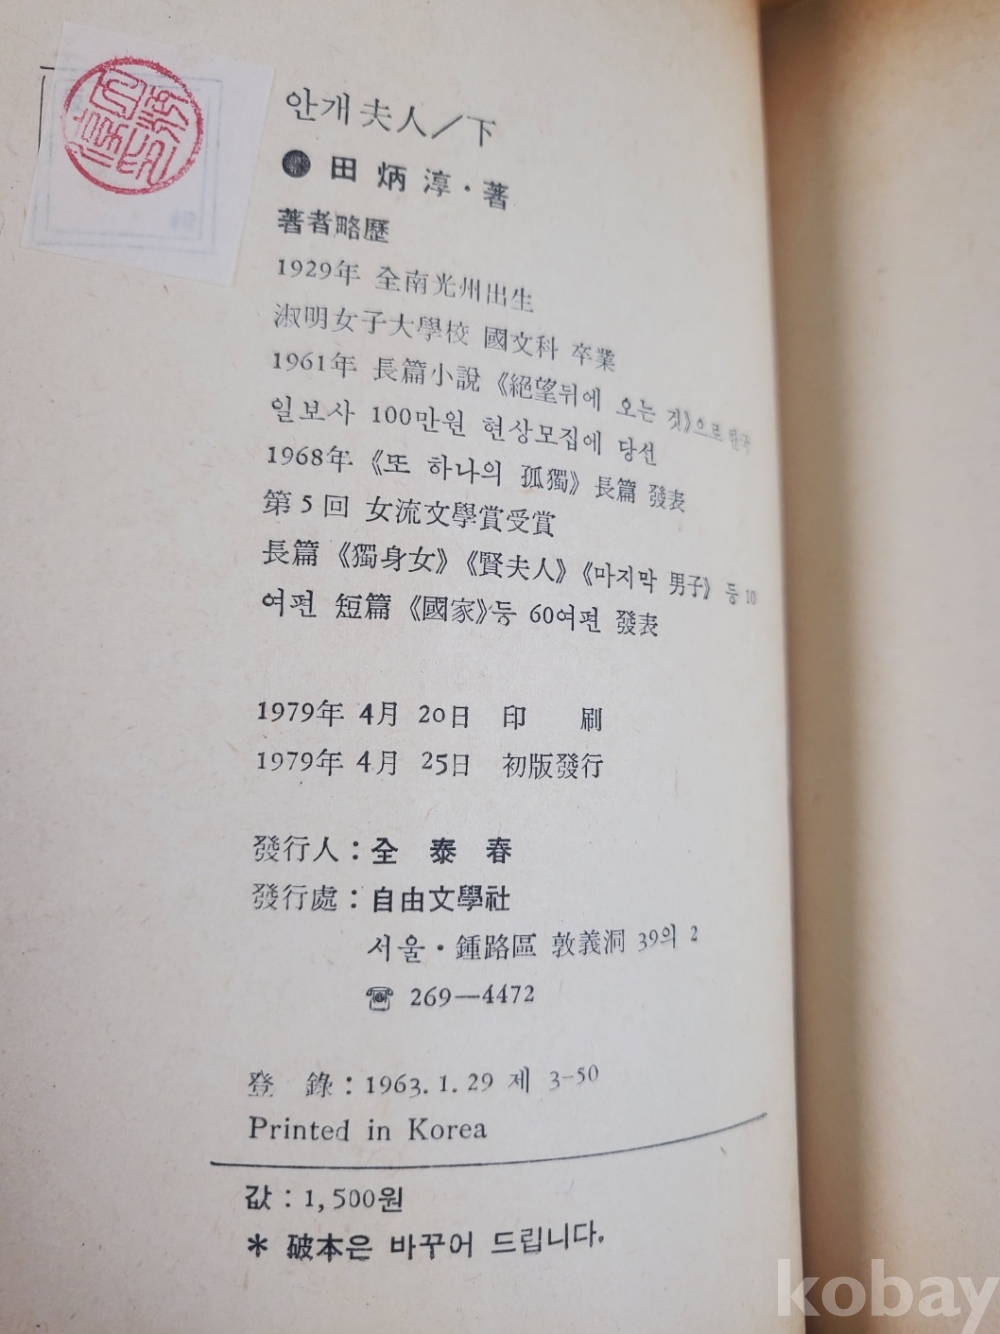 안개夫人/下
● 田炳淳·著
著者略歷
1929年 全南光州出生
淑明女子大學校 國文科 卒業
1961年 長篇小說 《絕望뒤에 오는 것》으로 한국
일보사 100만원 현상모집에 당선
1968年 《또 하나의 孤獨》 長篇 發表
第5回 女流文學賞受賞
長篇 《獨身女》《賢夫人》《마지막 男子》 등 10
여편 短篇 《國家》등 60여편 發表
1979年 4月 20日 印 刷
1979年 4月 25日 初版發行
發行人 : 全 泰 春
發行處 : 自由文學社
서울·鍾路區 敦義洞 39의 2
☎ 269—4472
登 錄 : 1963. 1. 29 제 3-50
Printed in Korea
값 : 1,500원
* 破本은 바꾸어 드립니다.
kobay